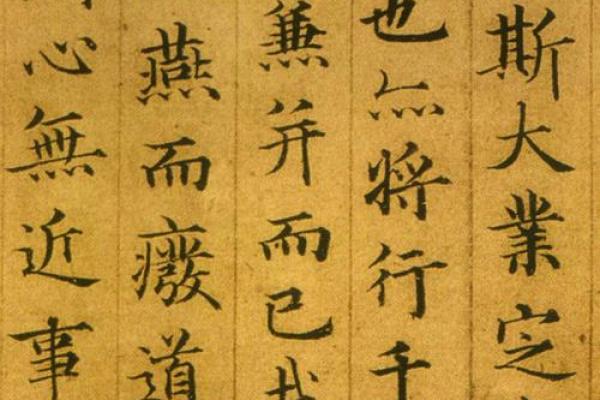 斯大業定
也亦將行千
兼并而已哉
燕而癈道
心無近事